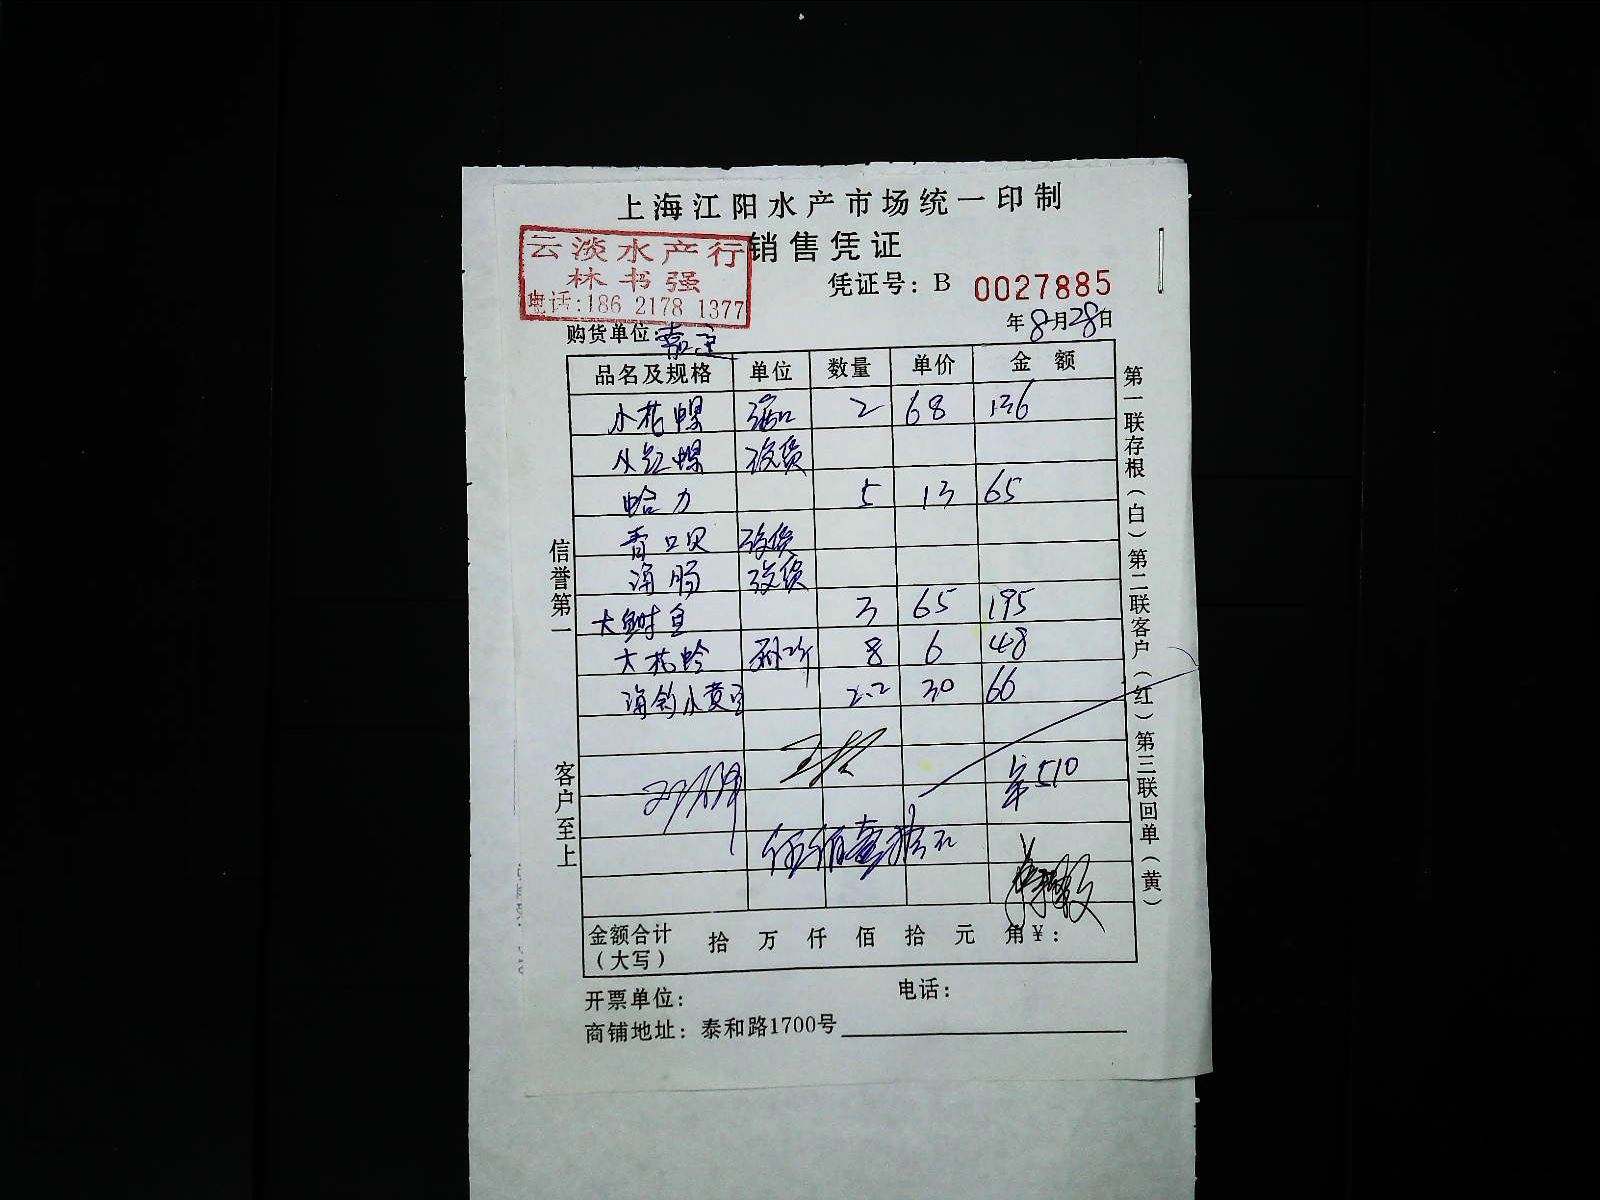 上海江阳水产市场统一印制
销售凭证
云淡水产行
林书强
电话:186 2178 1377
凭证号: B 0027885
年8月28日
购货单位:嘉定
品名及规格 单位 数量 单价 金额
小花螺 2 68 136
小红螺 没货
哈力 5 13 65
青口贝 没货
海肠 没货
大鲥鱼 3 65 195
大花蛤 8 6 48
海钓小黄鱼 2.2 30 66
510
伍佰壹拾元
金额合计(大写) 拾 万 仟 佰 拾 元 角 ¥:
开票单位: 电话:
商铺地址: 泰和路1700号
信誉第一 客户至上
第一联存根(白)第二联客户(红)第三联回单(黄)